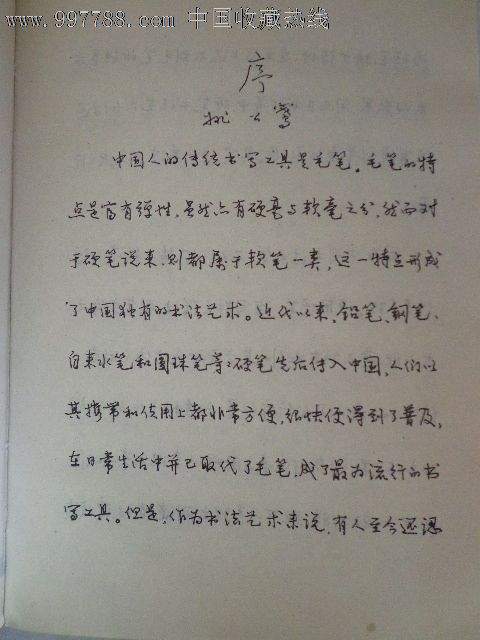 www.997788.com 中国收藏热线
序
姚公骞
中国人的传统书写工具是毛笔。毛笔的特
点是富有弹性,虽然亦有硬毫与软毫之分,然而对
于硬笔说来,则都属于软笔一类,这一特点形成
了中国独有的书法艺术。近代以来,铅笔、钢笔、
自来水笔和圆珠笔等等硬笔先后传入中国,人们以
其携带和使用上都非常方便,很快便得到了普及,
在日常生活中并已取代了毛笔,成了最为流行的书
写工具。但是,作为书法艺术来说,有人至今还认